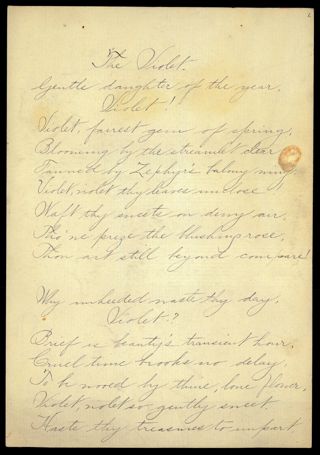 The Violet.
Gentle daughter of the year,
Violet!
Violet, fairest gem of spring,
Blooming by the streamlet clear
Fanned by Zephyr's balmy wing
Violet, violet thy leaves unclose
Waft thy sweets on dewy air,
Tho' we prize the blushing rose,
Thou art still beyond compare!
Why unheeded waste thy day,
Violet?
Brief is beauty's transient hour,
Cruel time brooks no delay,
To be wooed by thine, lone flower,
Violet, violet so gently sweet
Haste thy treasures to impart